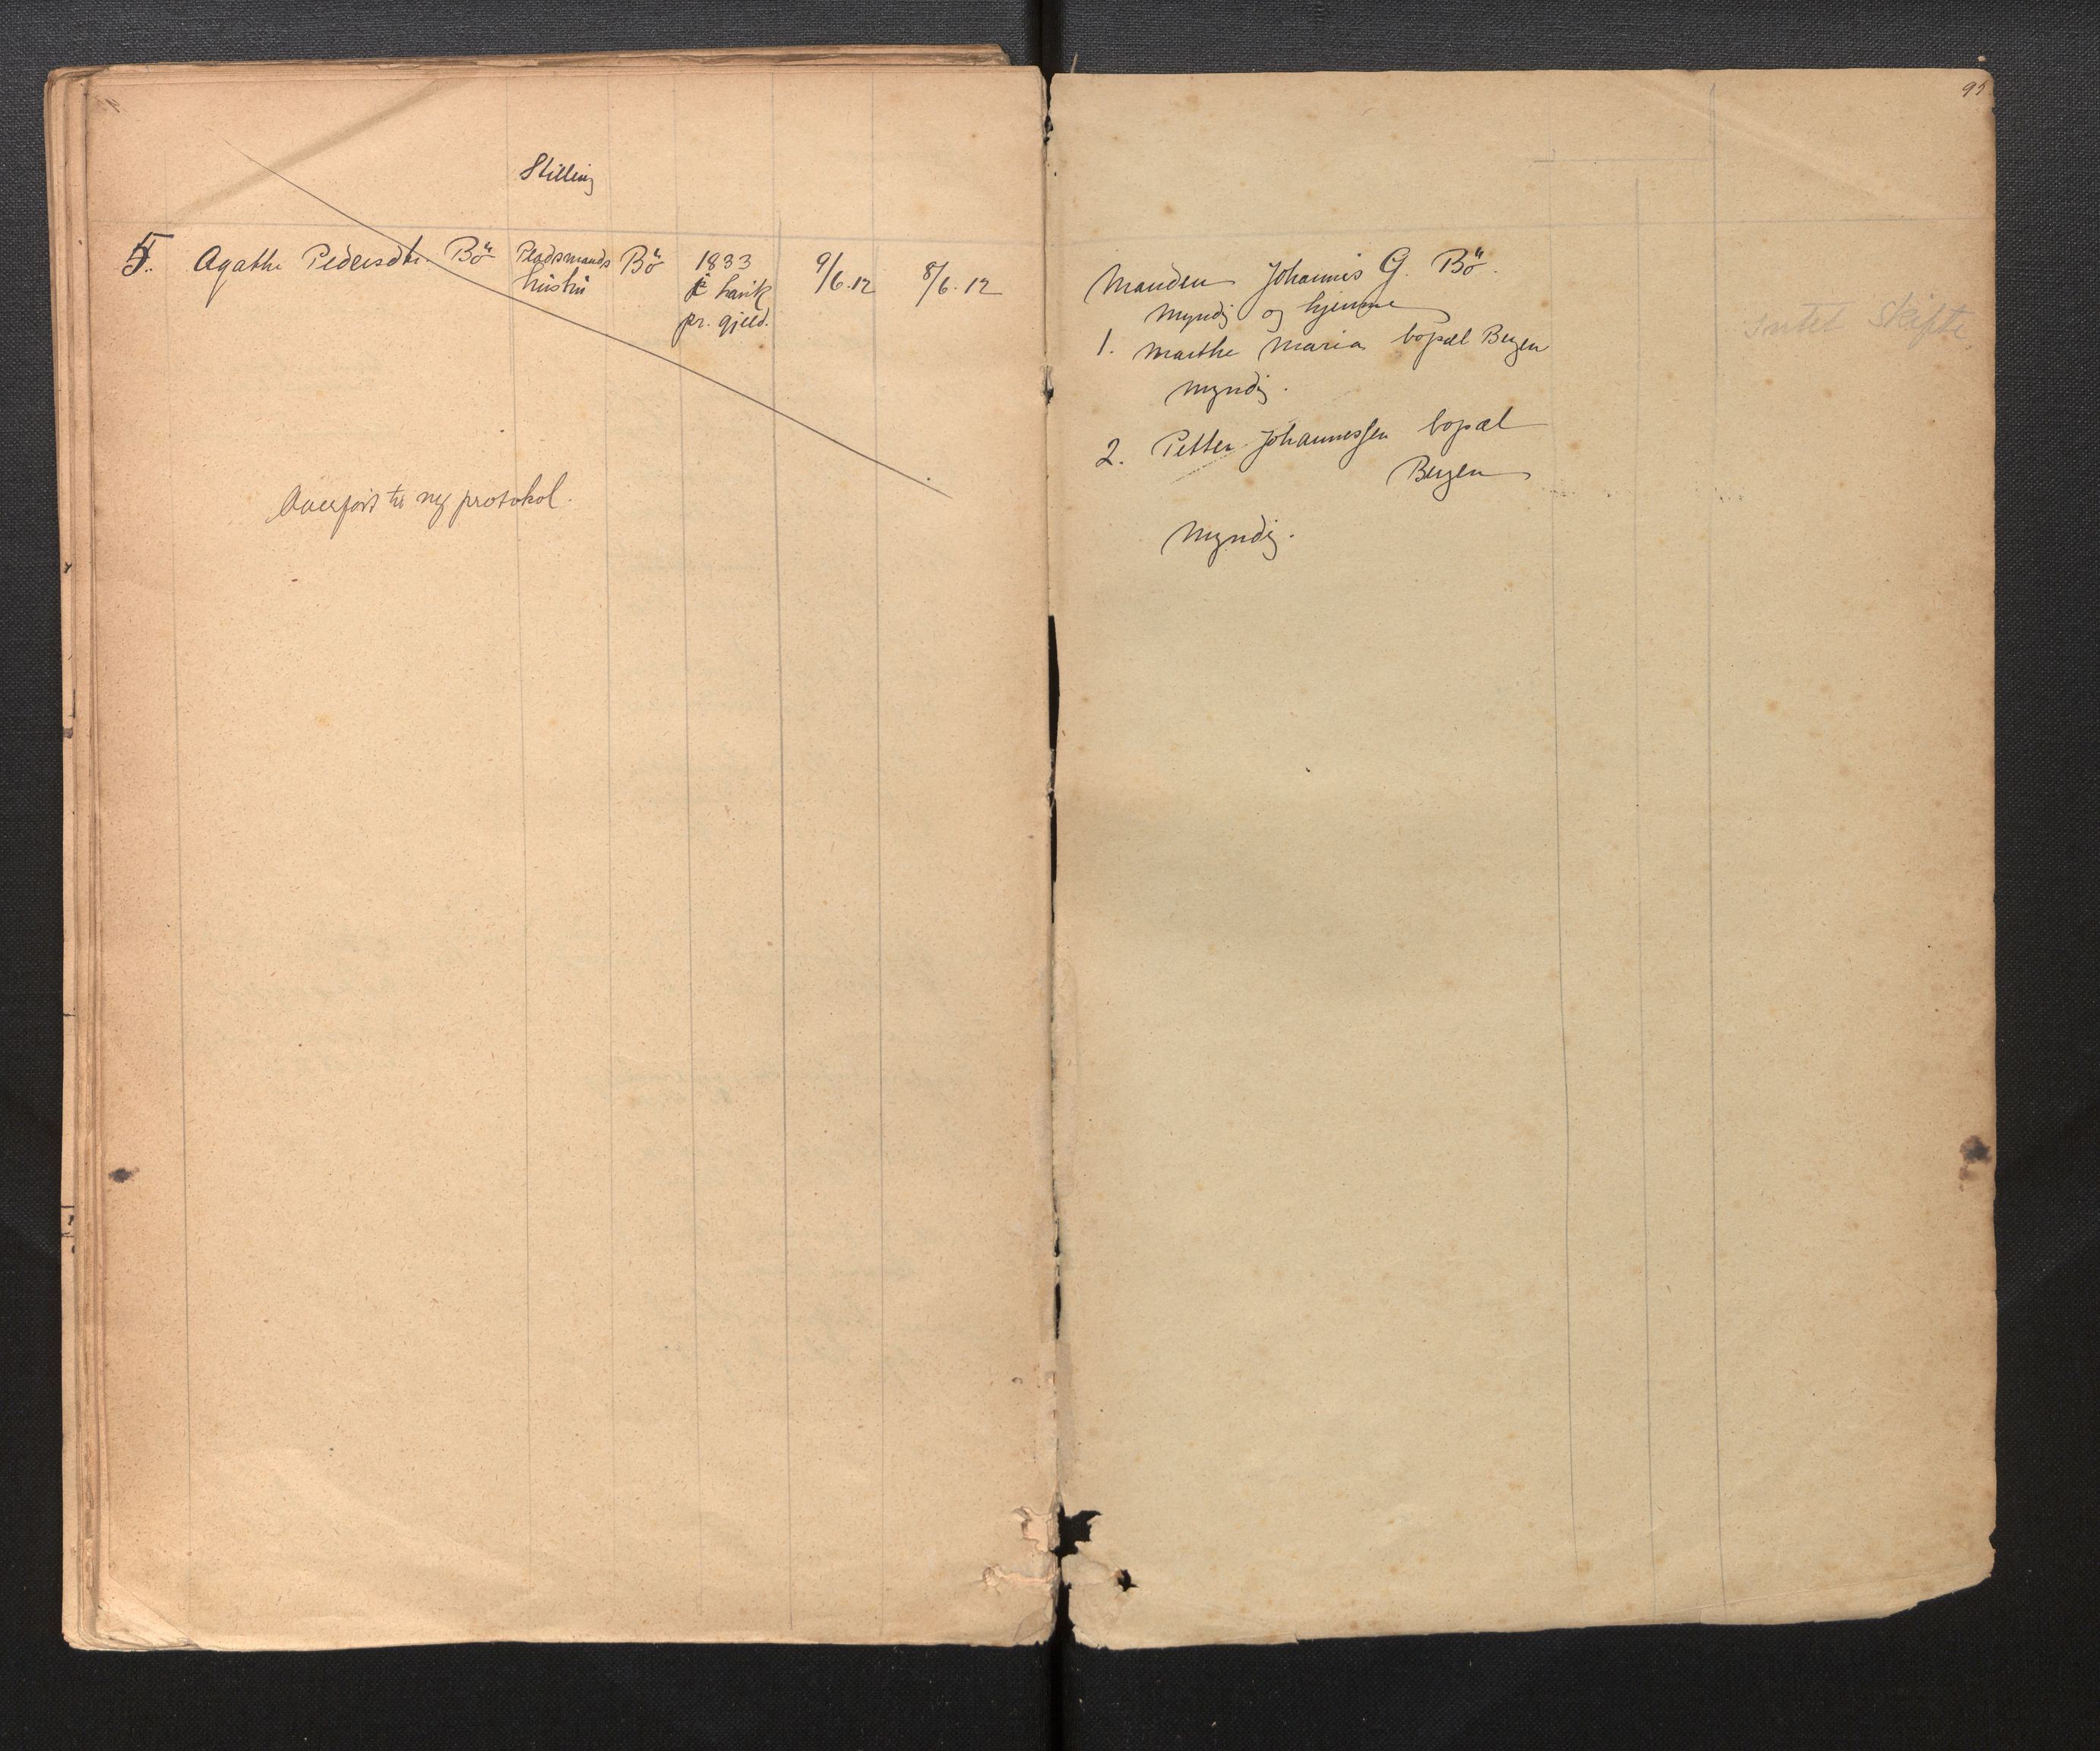 95
Stilling
5. Agathe Pedersdtr. Bö Pladsmands Bö 1833 9/6.12 8/6.12
hustru
i Lavik
pr. gjeld.
Overført til ny protokol.
Manden Johannes G. Bö.
Myndig og hjemme
1. Marthe Maria bopæl Bergen
Myndig.
2. Petter Johannessen bopæl
Bergen
Myndig.
Intet skifte.